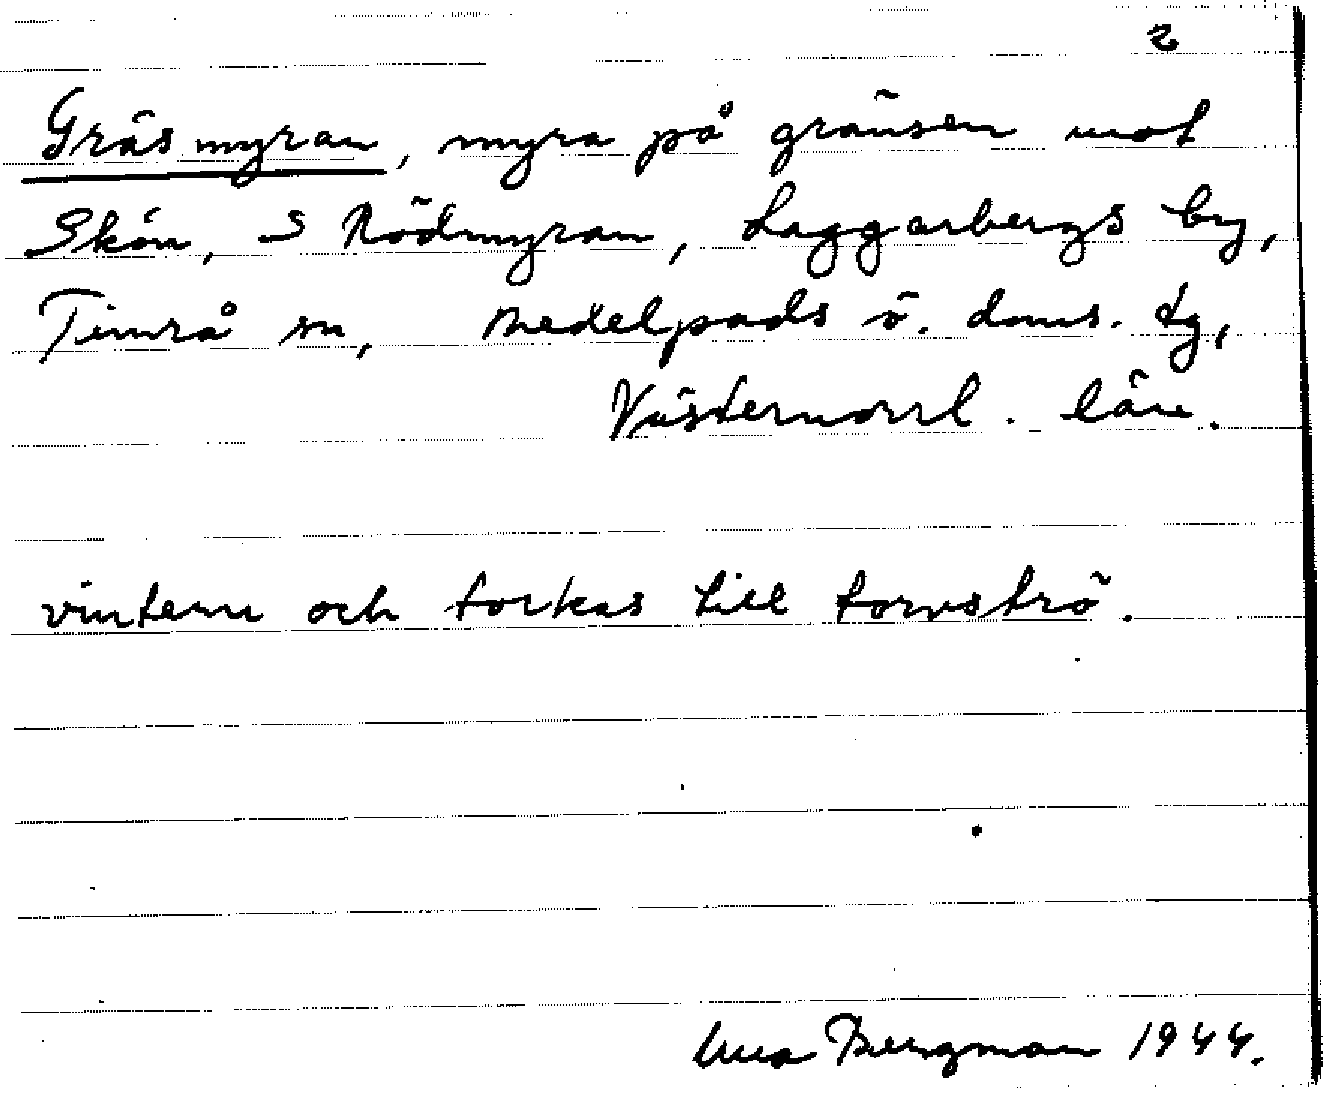 2
Gräsmyran, myra på gränsen mot
Skön, S Rödmyran, Laggarbergs by,
Timrå sn, Medelpads ö. doms. tg,
Västernorrl. län.
vintern och torkas till torvströ.
Bergman 1944.